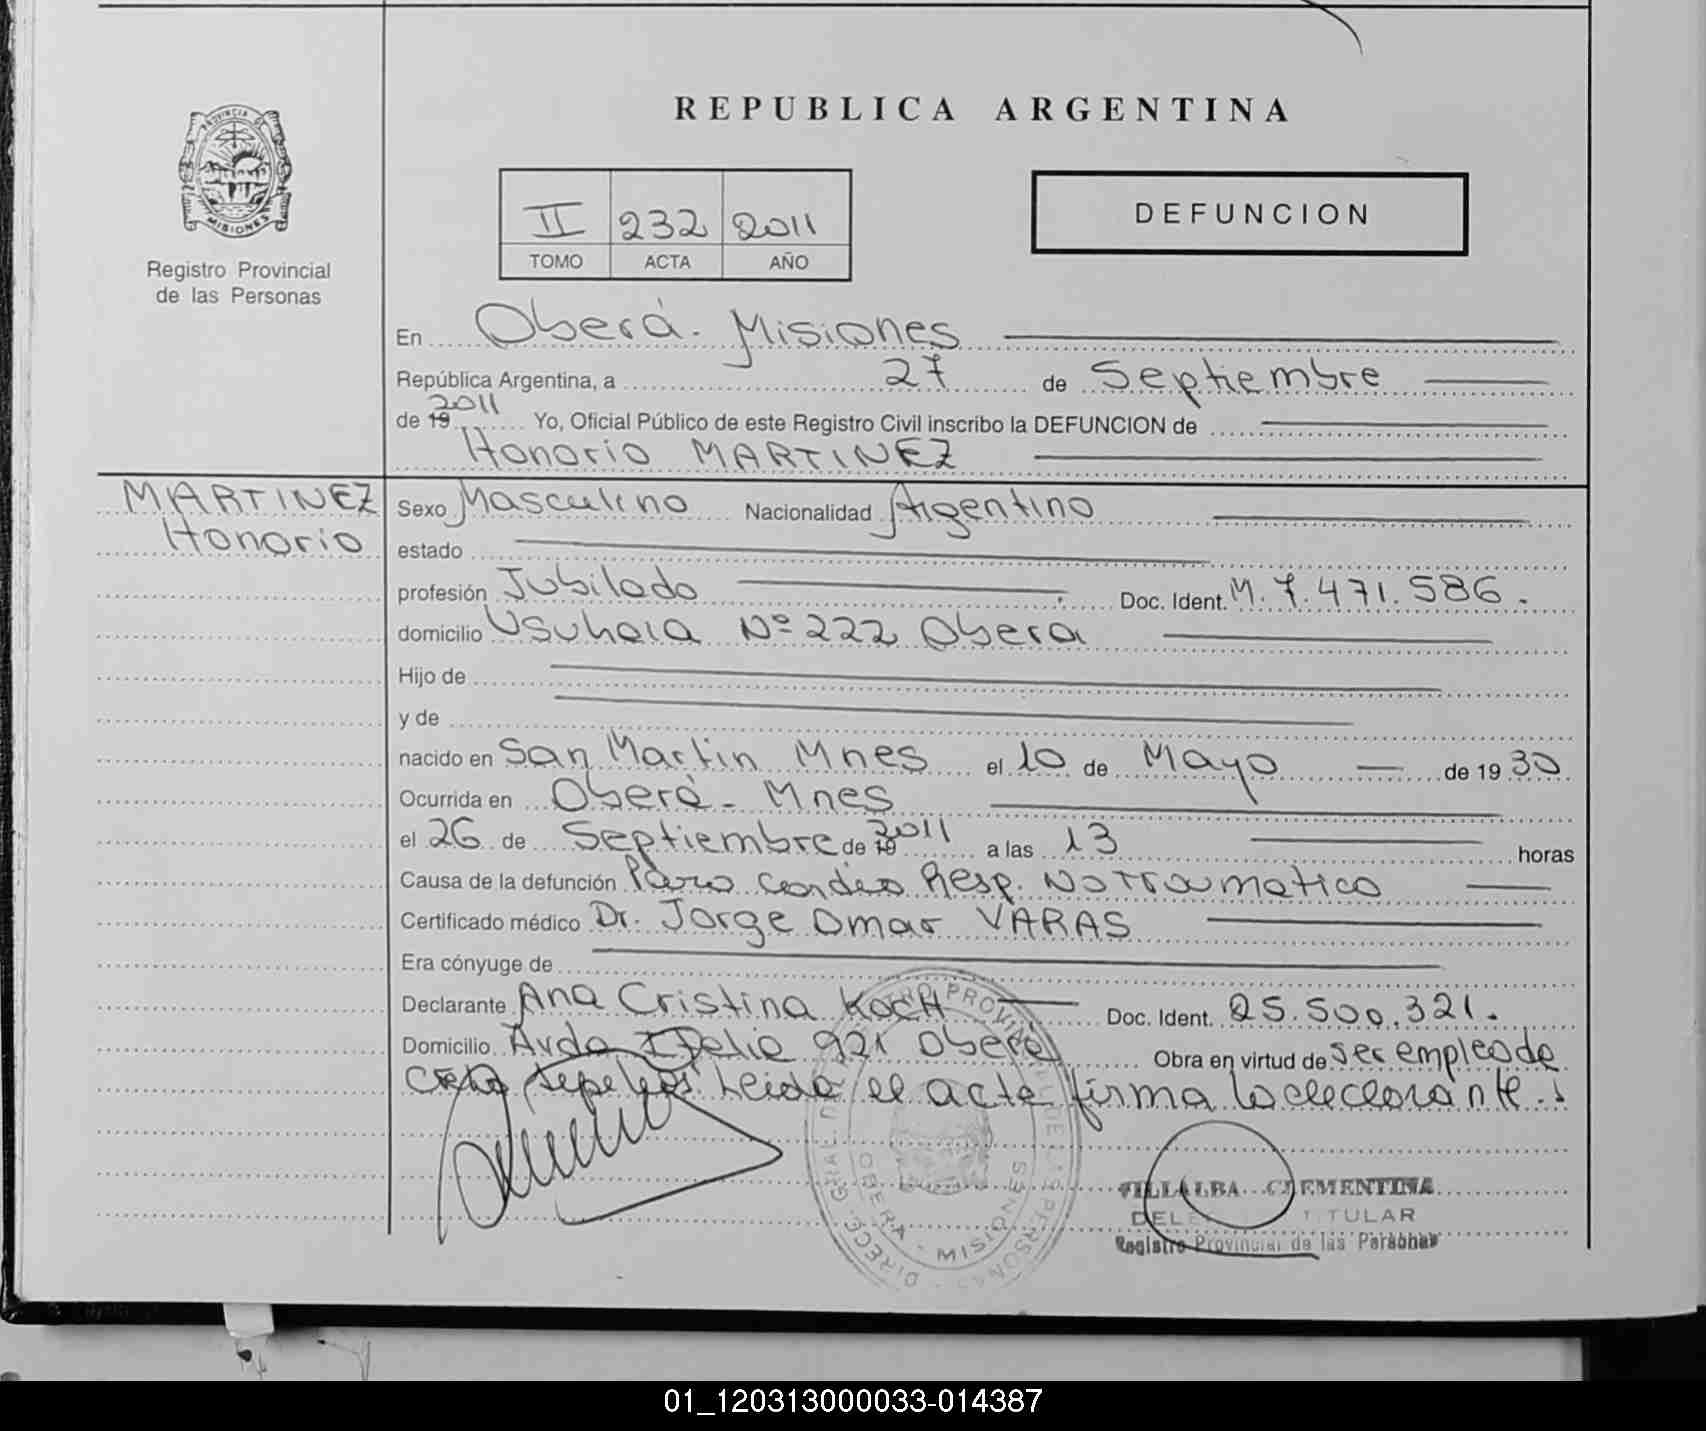 REPUBLICA ARGENTINA
PROVINCIA DE
MISIONES
Registro Provincial
de las Personas
II 232 2011
TOMO ACTA AÑO
DEFUNCION
En Oberá - Misiones
República Argentina, a 27 de Septiembre
de 19 2011 Yo, Oficial Público de este Registro Civil inscribo la DEFUNCION de
Honorio MARTINEZ
MARTINEZ
Honorio
Sexo Masculino Nacionalidad Argentino
estado
profesión Jubilado Doc. Ident. M. 7.471.586.
domicilio Usuhaia Nº 222 Obera
Hijo de
y de
nacido en San Martin Mnes el 10 de Mayo de 19 30
Ocurrida en Oberá - Mnes
el 26 de Septiembre de 19 2011 a las 13 horas
Causa de la defunción Paro Cardio Resp. No Traumatico
Certificado médico Dr. Jorge Omar VARAS
Era cónyuge de
Declarante Ana Cristina KOCH Doc. Ident. 25.500.321.
Domicilio Avda Italia 921 Oberá Obra en virtud de ser empleada de
sepelios Leida el acta firma la declarante.
DIRECC. GRAL. DE PROVINCIAL DE LAS PERSONAS
OBERA - MISIONES
VILLALBA CLEMENTINA
TITULAR
Registro Provincial de las Personas
01_120313000033-014387